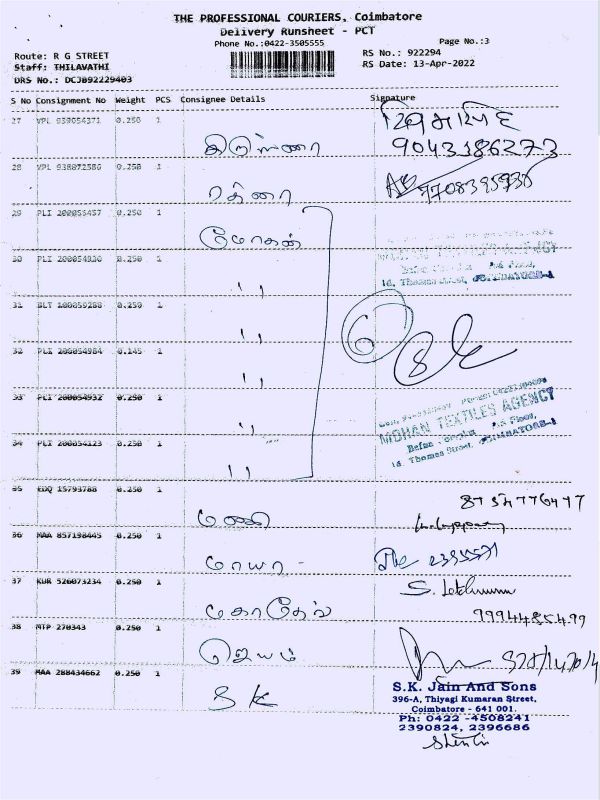 THE PROFESSIONAL COURIERS, Coimbatore
Delivery Runsheet - PCT
Phone No.:0422-3505555
Page No.:3
Route: R G STREET
RS No.: 922294
Staff: THILAVATHI
RS Date: 13-Apr-2022
DRS No.: DCJ092229403
S No Consignment No Weight PCS Consignee Details Signature
27 VPL 939054371 0.250 1
9043186273
28 VPL 938872586 0.250 1
29 PLI 200055457 0.250 1 மோகன்
30 PLI 200054930 0.250 1 ,,
31 BLT 100059288 0.250 1 ,,
6
32 PLI 200054984 0.145 1 ,,
33 PLI 200054932 0.250 1 ,,
MOHAN TEXTILES AGENCY
34 PLI 200054123 0.250 1 ,,
16, Thomas Street, COIMBATORE-1
35 EDQ 15793788 0.250 1 மணி
36 MAA 857198445 0.250 1 மாயா -
37 KUR 526073234 0.250 1
9994485499
38 MTP 270343 0.250 1 ஜெயம்
39 MAA 288434662 0.250 1 S K
S.K. Jain And Sons
396-A, Thiyagi Kumaran Street,
Coimbatore - 641 001.
Ph: 0422 -4508241
2390824, 2396686